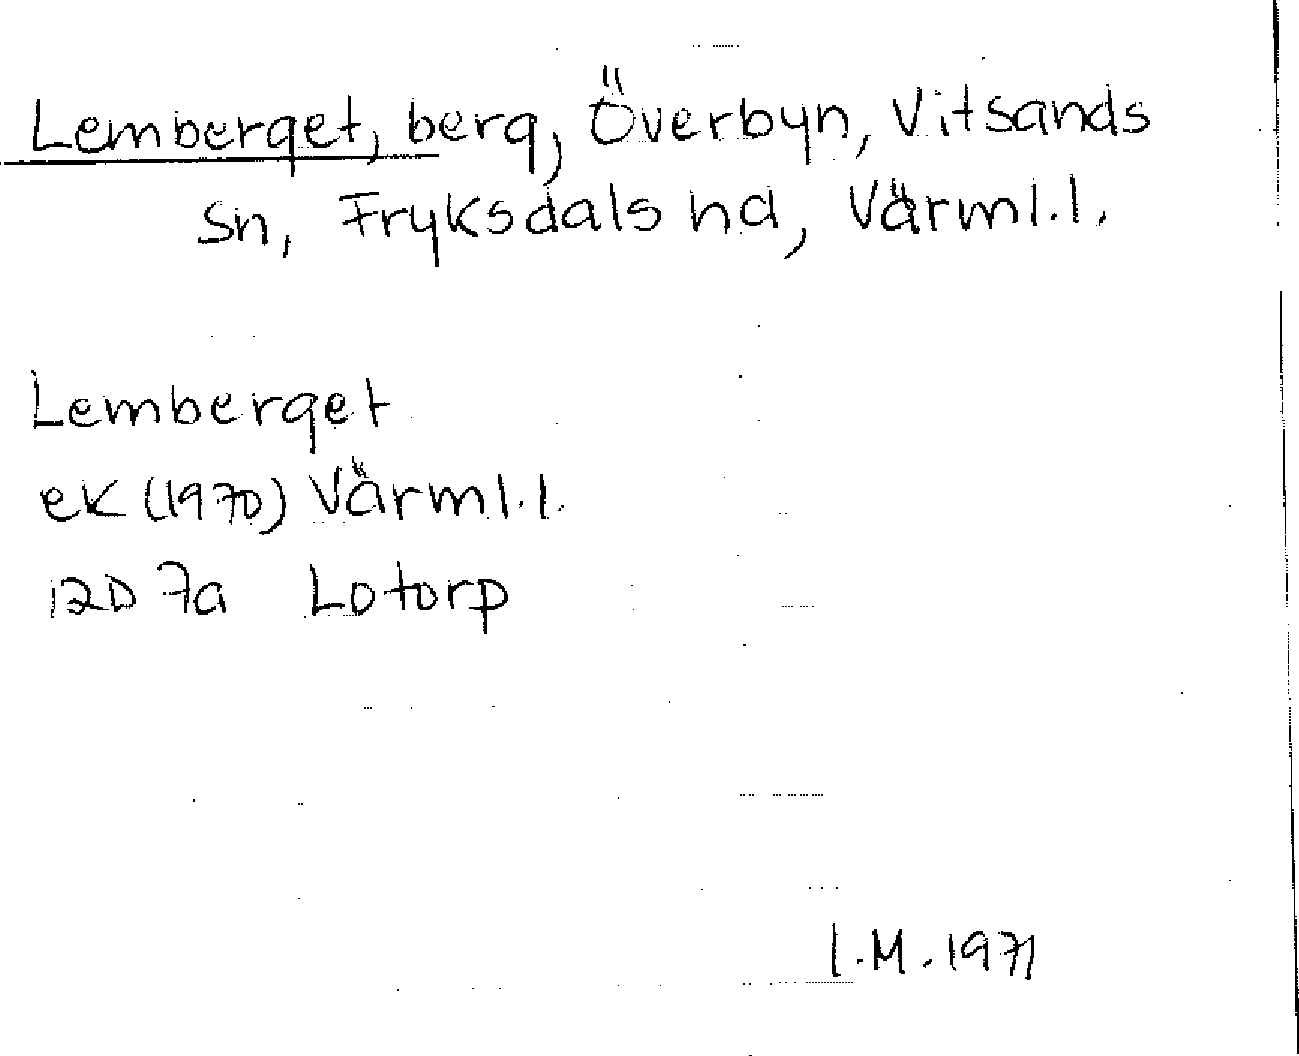 Lemberget, berg, Överbyn, Vitsands
Sn, Fryksdals hd, Värml.l.
Lemberget
ek (1970) Värml.l.
12D 7a Lotorp
I.M. 1971